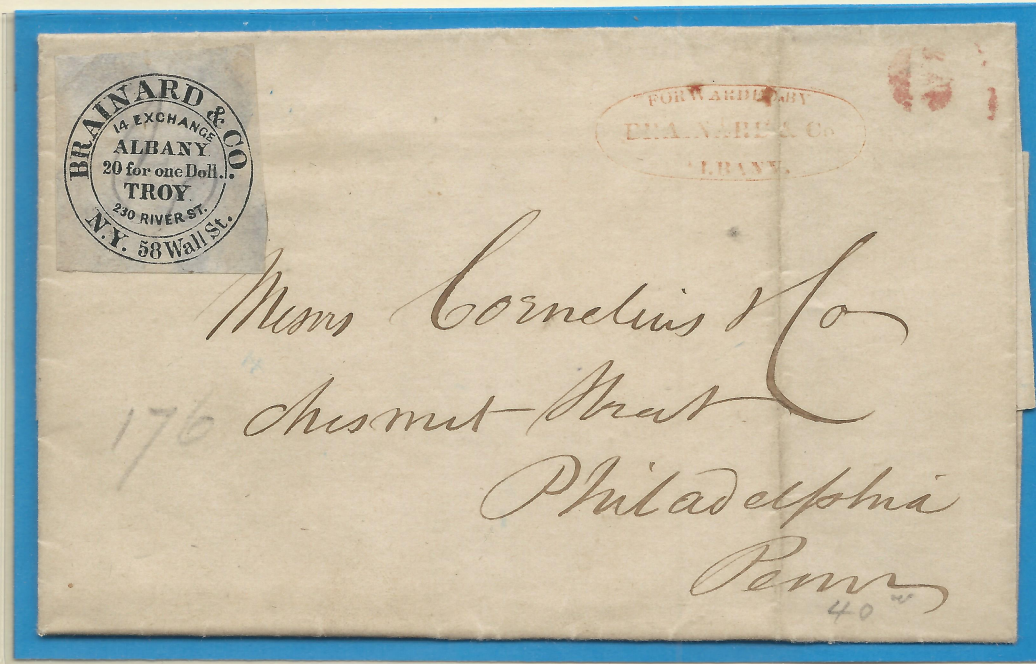 BRAINARD & CO.
14 EXCHANGE
ALBANY
20 for one Doll.
TROY
230 RIVER ST.
N.Y. 58 Wall St.
FORWARDED BY
BRAINARD & Co
ALBANY.
Messrs Cornelius & Co
Chesnut Street
Philadelphia
Penn
176
40